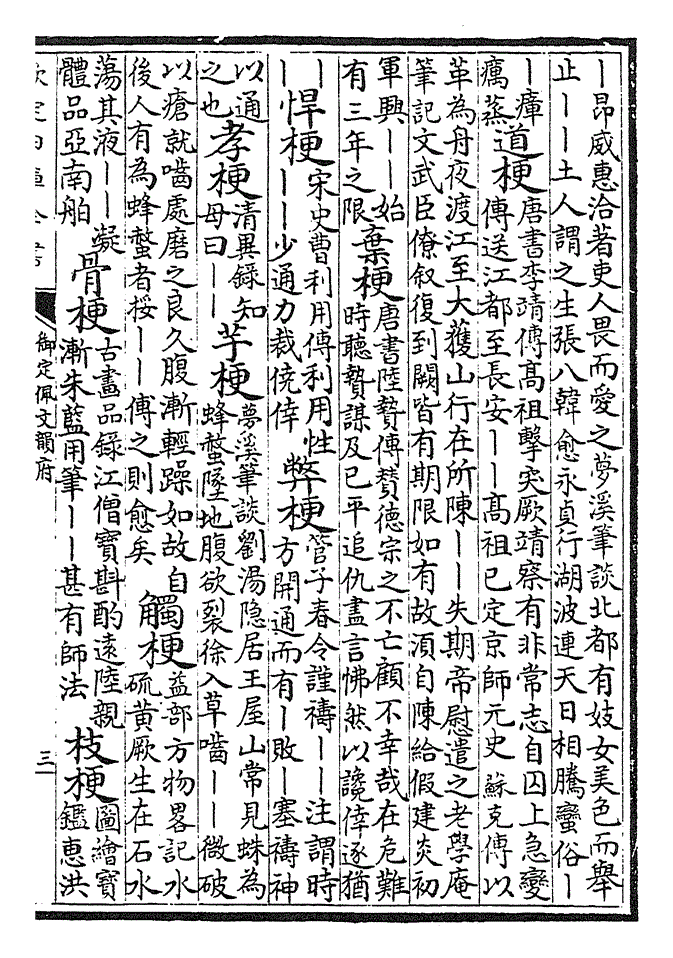 丨昂威惠洽著吏人畏而愛之夢溪筆談北都有妓女美色而舉
止丨丨土人謂之生張八韓愈永貞行湖波連天日相騰蠻俗丨
丨瘴
癘蒸
道梗
唐書李靖傳高祖擊突厥靖察有非常志自囚上急變
傳送江都至長安丨丨高祖已定京師元史蘇克傳以
革為舟夜渡江至大獲山行在所陳丨丨失期帝慰遣之老學庵
筆記文武臣僚叙復到闕皆有期限如有故湏自陳給假建炎初
軍興丨丨始
有三年之限
棄梗
唐書陸贄傳賛德宗之不亡顧不幸哉在危難
時聽贄謀及已平追仇盡言怫然以讒倖逐猶
丨
丨
悍梗
宋史曹利用傳利用性
丨丨少通力裁僥倖
弊梗
管子春令謹禱丨丨注謂時
方開通而有丨敗丨塞禱神
以通
之也
孝梗
清異錄知
母曰丨丨
芋梗
夢溪筆談劉湯隐居王屋山常見蛛為
蜂螫墜地腹欲裂徐入草噛丨丨微破
以瘡就噛處磨之良久腹漸輕躁如故自
後人有為蜂螫者挼丨丨傅之則愈矣
觸梗
益部方物畧記水
硫黄厥生在石水
蕩其液丨丨凝
體品亞南舶
骨梗
古畫品錄江僧寳斟酌遠陸親
漸朱藍用筆丨丨甚有師法
枝梗
圖繪寳
鑑惠洪
御定佩文韻府
三